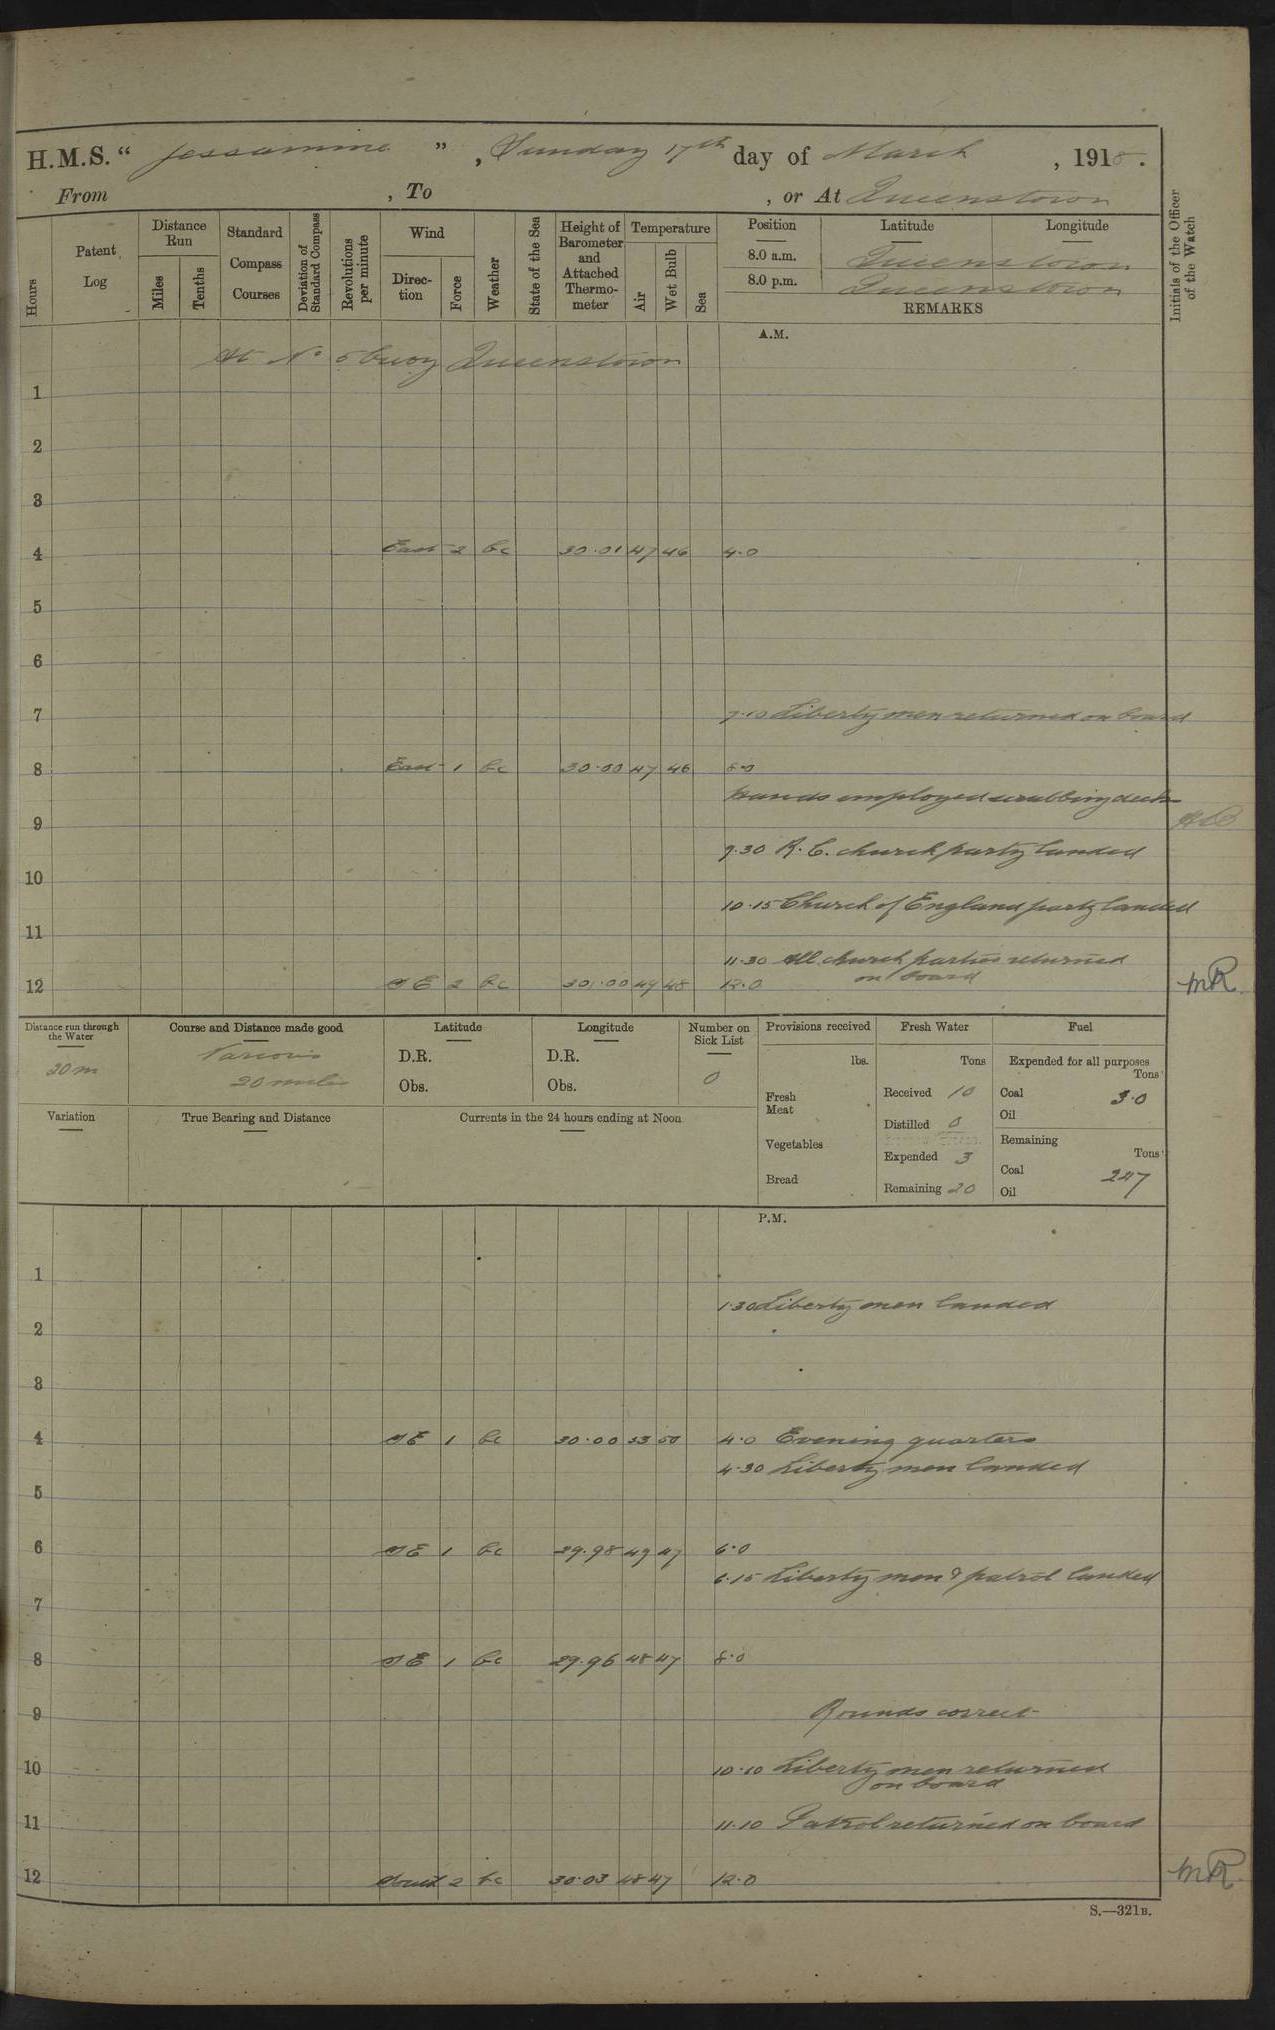 H.M.S. “ Jessamine ” , Sunday 17th day of March , 1918 .
From , To , or At Queenstown
Hours
Patent Log
Distance Run
Miles
Tenths
Standard Compass Courses
Deviation of Standard Compass
Revolutions per minute
Wind
Direction
Force
Weather
State of the Sea
Height of Barometer and Attached Thermometer
Temperature
Air
Wet Bulb
Sea
Position Latitude Longitude
8.0 a.m. Queenstown
8.0 p.m. Queenstown
REMARKS
Initials of the Officer of the Watch
A.M.
At No 5 buoy Queenstown
1
2
3
4 East 2 bc 30.01 47 46 4.0
5
6
7 7.10 Liberty men returned on board
8 East 1 bc 30.00 47 46 8.0
Hands employed scrubbing decks
9
9.30 R.C. church party landed
10
10.15 Church of England party landed
11
11.30 All church parties returned
on board
12 SE 2 bc 30.00 49 48 12.0 MR
Distance run through the Water
20m
Course and Distance made good
Various
20 miles
Latitude
D.R.
Obs.
Longitude
D.R.
Obs.
Number on Sick List
0
Provisions received
lbs.
Fresh Meat
Vegetables
Bread
Fresh Water
Tons
Received 10
Distilled 0
Expended 3
Remaining 20
Fuel
Expended for all purposes
Tons
Coal 3.0
Oil
Remaining
Tons
Coal 247
Oil
Variation
True Bearing and Distance
Currents in the 24 hours ending at Noon
P.M.
1
1.30 Liberty men landed
2
3
4 SE 1 bc 30.00 53 50 4.0 Evening quarters
4.30 Liberty men landed
5
6 SE 1 bc 29.98 49 47 6.0
6.15 Liberty men & patrol landed
7
8 SE 1 bc 29.96 48 47 8.0
9 Rounds correct
10 10.10 Liberty men returned
on board
11 11.10 Patrol returned on board
12 South 2 bc 30.03 48 47 12.0 MR
S.—321B.